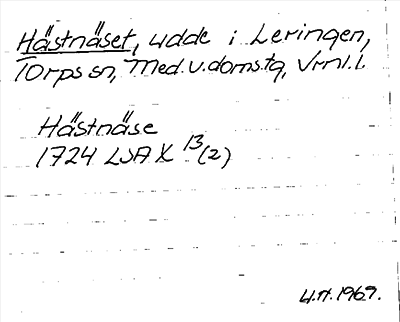 Hästnäset, udde i Leringen,
Torps sn, Med. v. doms.tg, Vrnl. l.
Hästnäse
1724 LSA X 13(2)
U.H. 1969.